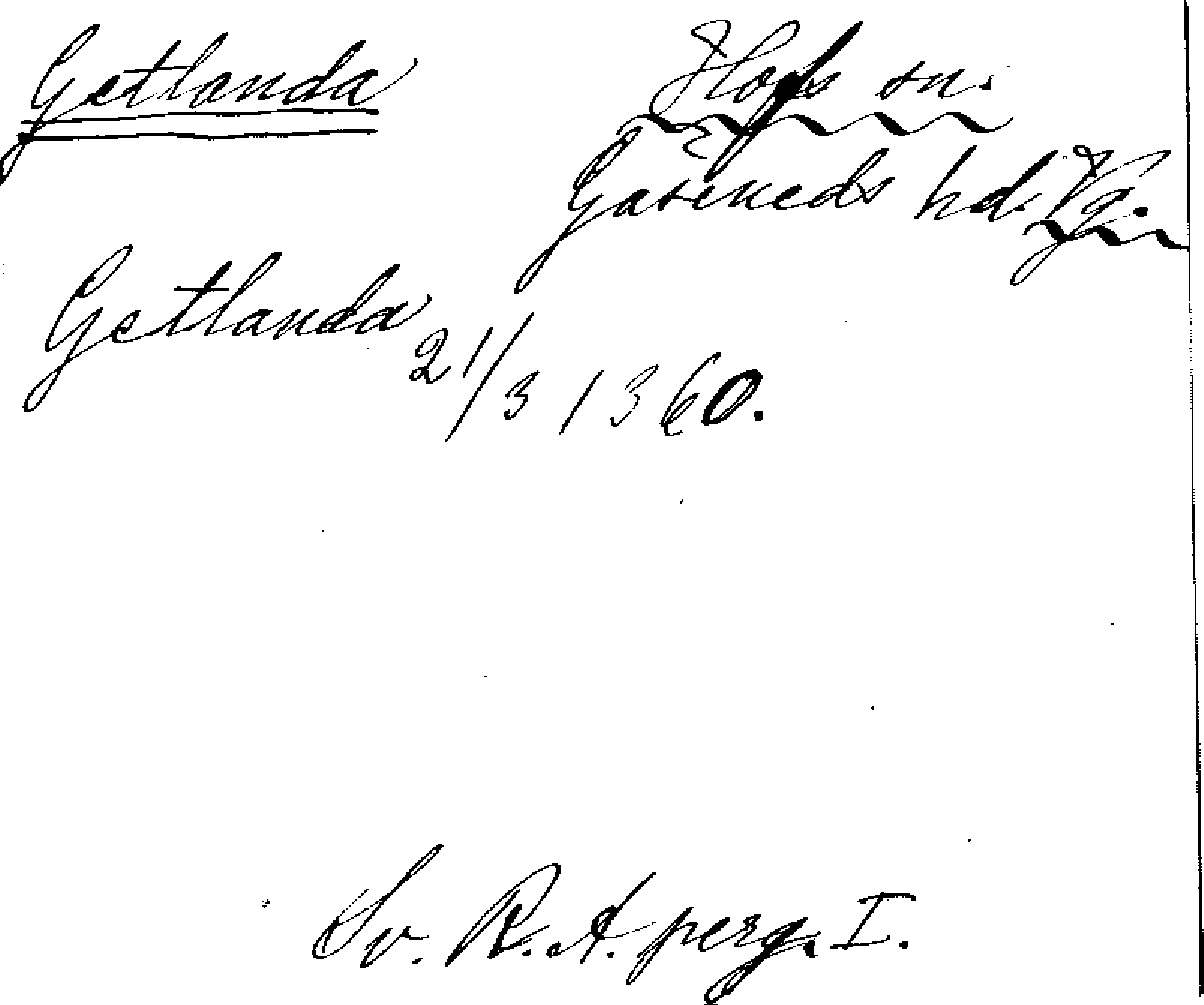 Getlanda
Hofs sn.
Gäseneds hd. Vg.
Getlanda
21/3 1360.
Sv. R. A. perg. I.